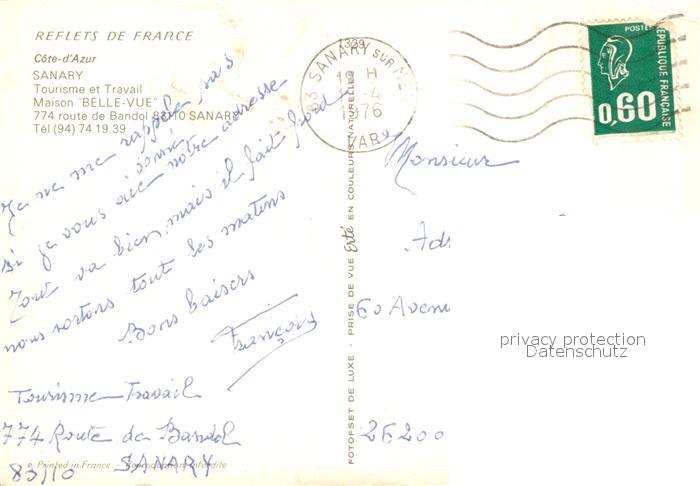 REFLETS DE FRANCE
Côte-d'Azur
SANARY
Tourisme et Travail
Maison "BELLE-VUE"
774 route de Bandol 83110 SANARY
Tél (94) 74.19.39
Je ne me rappelle pas
si je vous ai donné notre adresse
Tout va bien, mais il fait froid
nous sortons tout les matins
Bons baisers
François
Tourisme Travail
774 Route de Bandol
83110 SANARY
Printed in France - Reproduction interdite
FOTOFSET DE LUXE - PRISE DE VUE erté EN COULEURS NATURELLES
1329
83 SANARY SUR MER
H
-4
1976
VAR
POSTES
REPUBLIQUE FRANÇAISE
0,60
Monsieur
60 Avenu
26200
privacy protection
Datenschutz